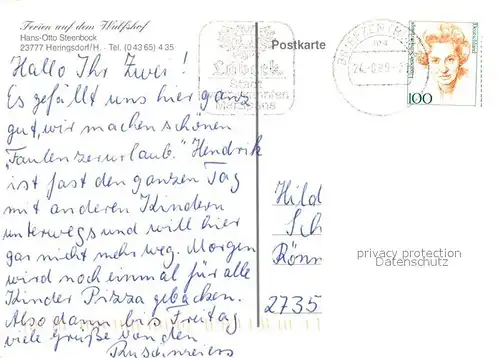 Ferien auf dem Wulfshof
Hans-Otto Steenbock
23777 Heringsdorf/H. · Tel. (0 43 65) 4 35
Postkarte
Lübeck
Stadt
100
Hallo Ihr Zwei!
Es gefällt uns hier ganz
gut, wir machen schönen
"Faulenzerurlaub." Hendrik
ist fast den ganzen Tag
mit anderen Kindern
unterwegs und will hier
gar nicht mehr weg. Morgen
wird noch einmal für alle
Kinder Pizza gebacken.
Also dann bis Freitag
viele Grüße von den
Ruschmeiers
Hild
Sch
Rönn
2735
privacy protection
Datenschutz